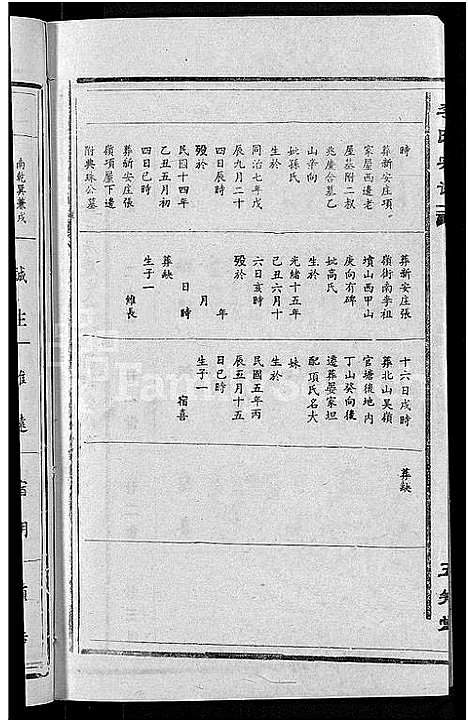 時
葬新安庄項
家屋西邊老
屋基附二叔
兆慶合墓乙
山辛向
妣孫氏
同治七年戊
辰九月二十
四日辰時
歿於
民國十四年
乙丑五月初
四日巳時
葬新安庄張
嶺項屋下邊
附典珠公墓
葬新安庄張
嶺街南李祖
墳山西甲山
庚向有碑
妣高氏
生於
光緒十五年
己丑六月十
六日亥時
歿於
年
月
日時
葬缺
生子一
維長
十六日戌時
葬北山吴嶺
官塘後地內
丁山癸向後
遷葬晏家坦
配項氏名大
妹
生於
民國五年丙
辰五月十五
日巳時
生子一
宿喜
葬缺
向乾巽兼戌